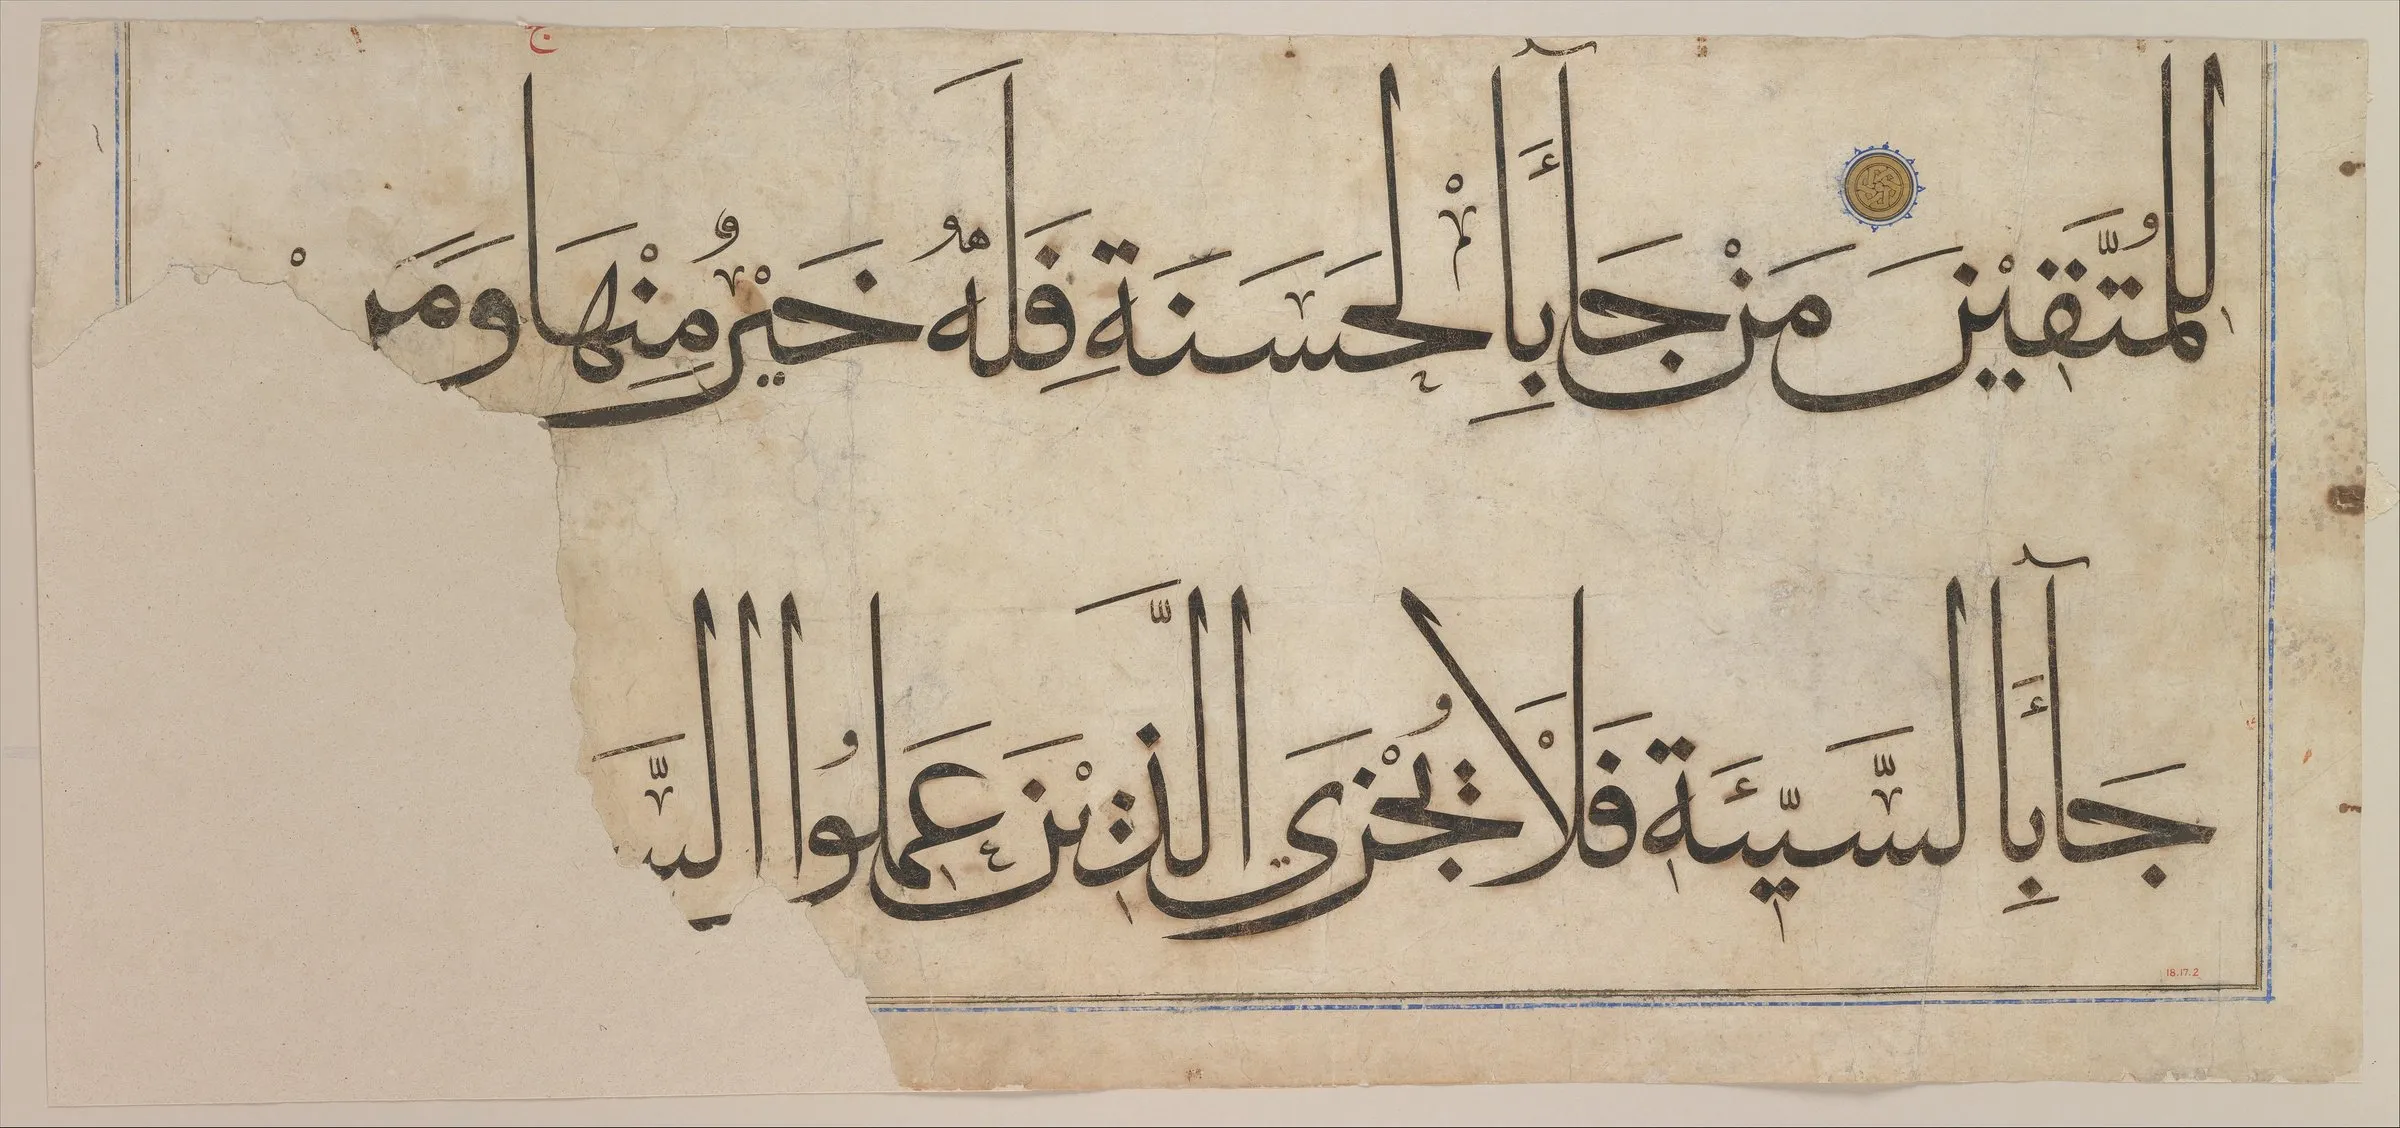 ج
لِلْمُتَّقِيْنَ مَنْ جَآءَ بِالْحَسَنَةِ فَلَهُ خَيْرٌ مِنْهَا وَمَنْ
جَآءَ بِالسَّيِّئَةِ فَلَا يُجْزَى الَّذِيْنَ عَمَلُوا السَّيـ
18.17.2